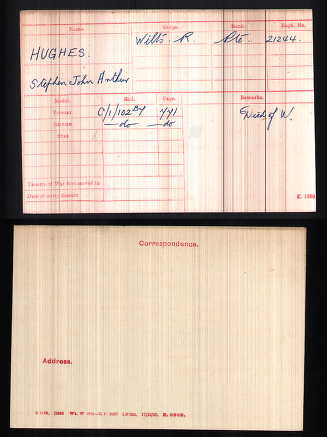 Name. Corps. Rank. Regtl. No.
HUGHES. Wilts. R. Pte. 21244.
Stephen John Arthur
Medal. Roll. Page. Remarks.
Victory C/1/102B7 771 Died of W.
British —do— —do
Star
Theatre of War first served in
Date of entry therein
K. 1380
Correspondence.
Address.